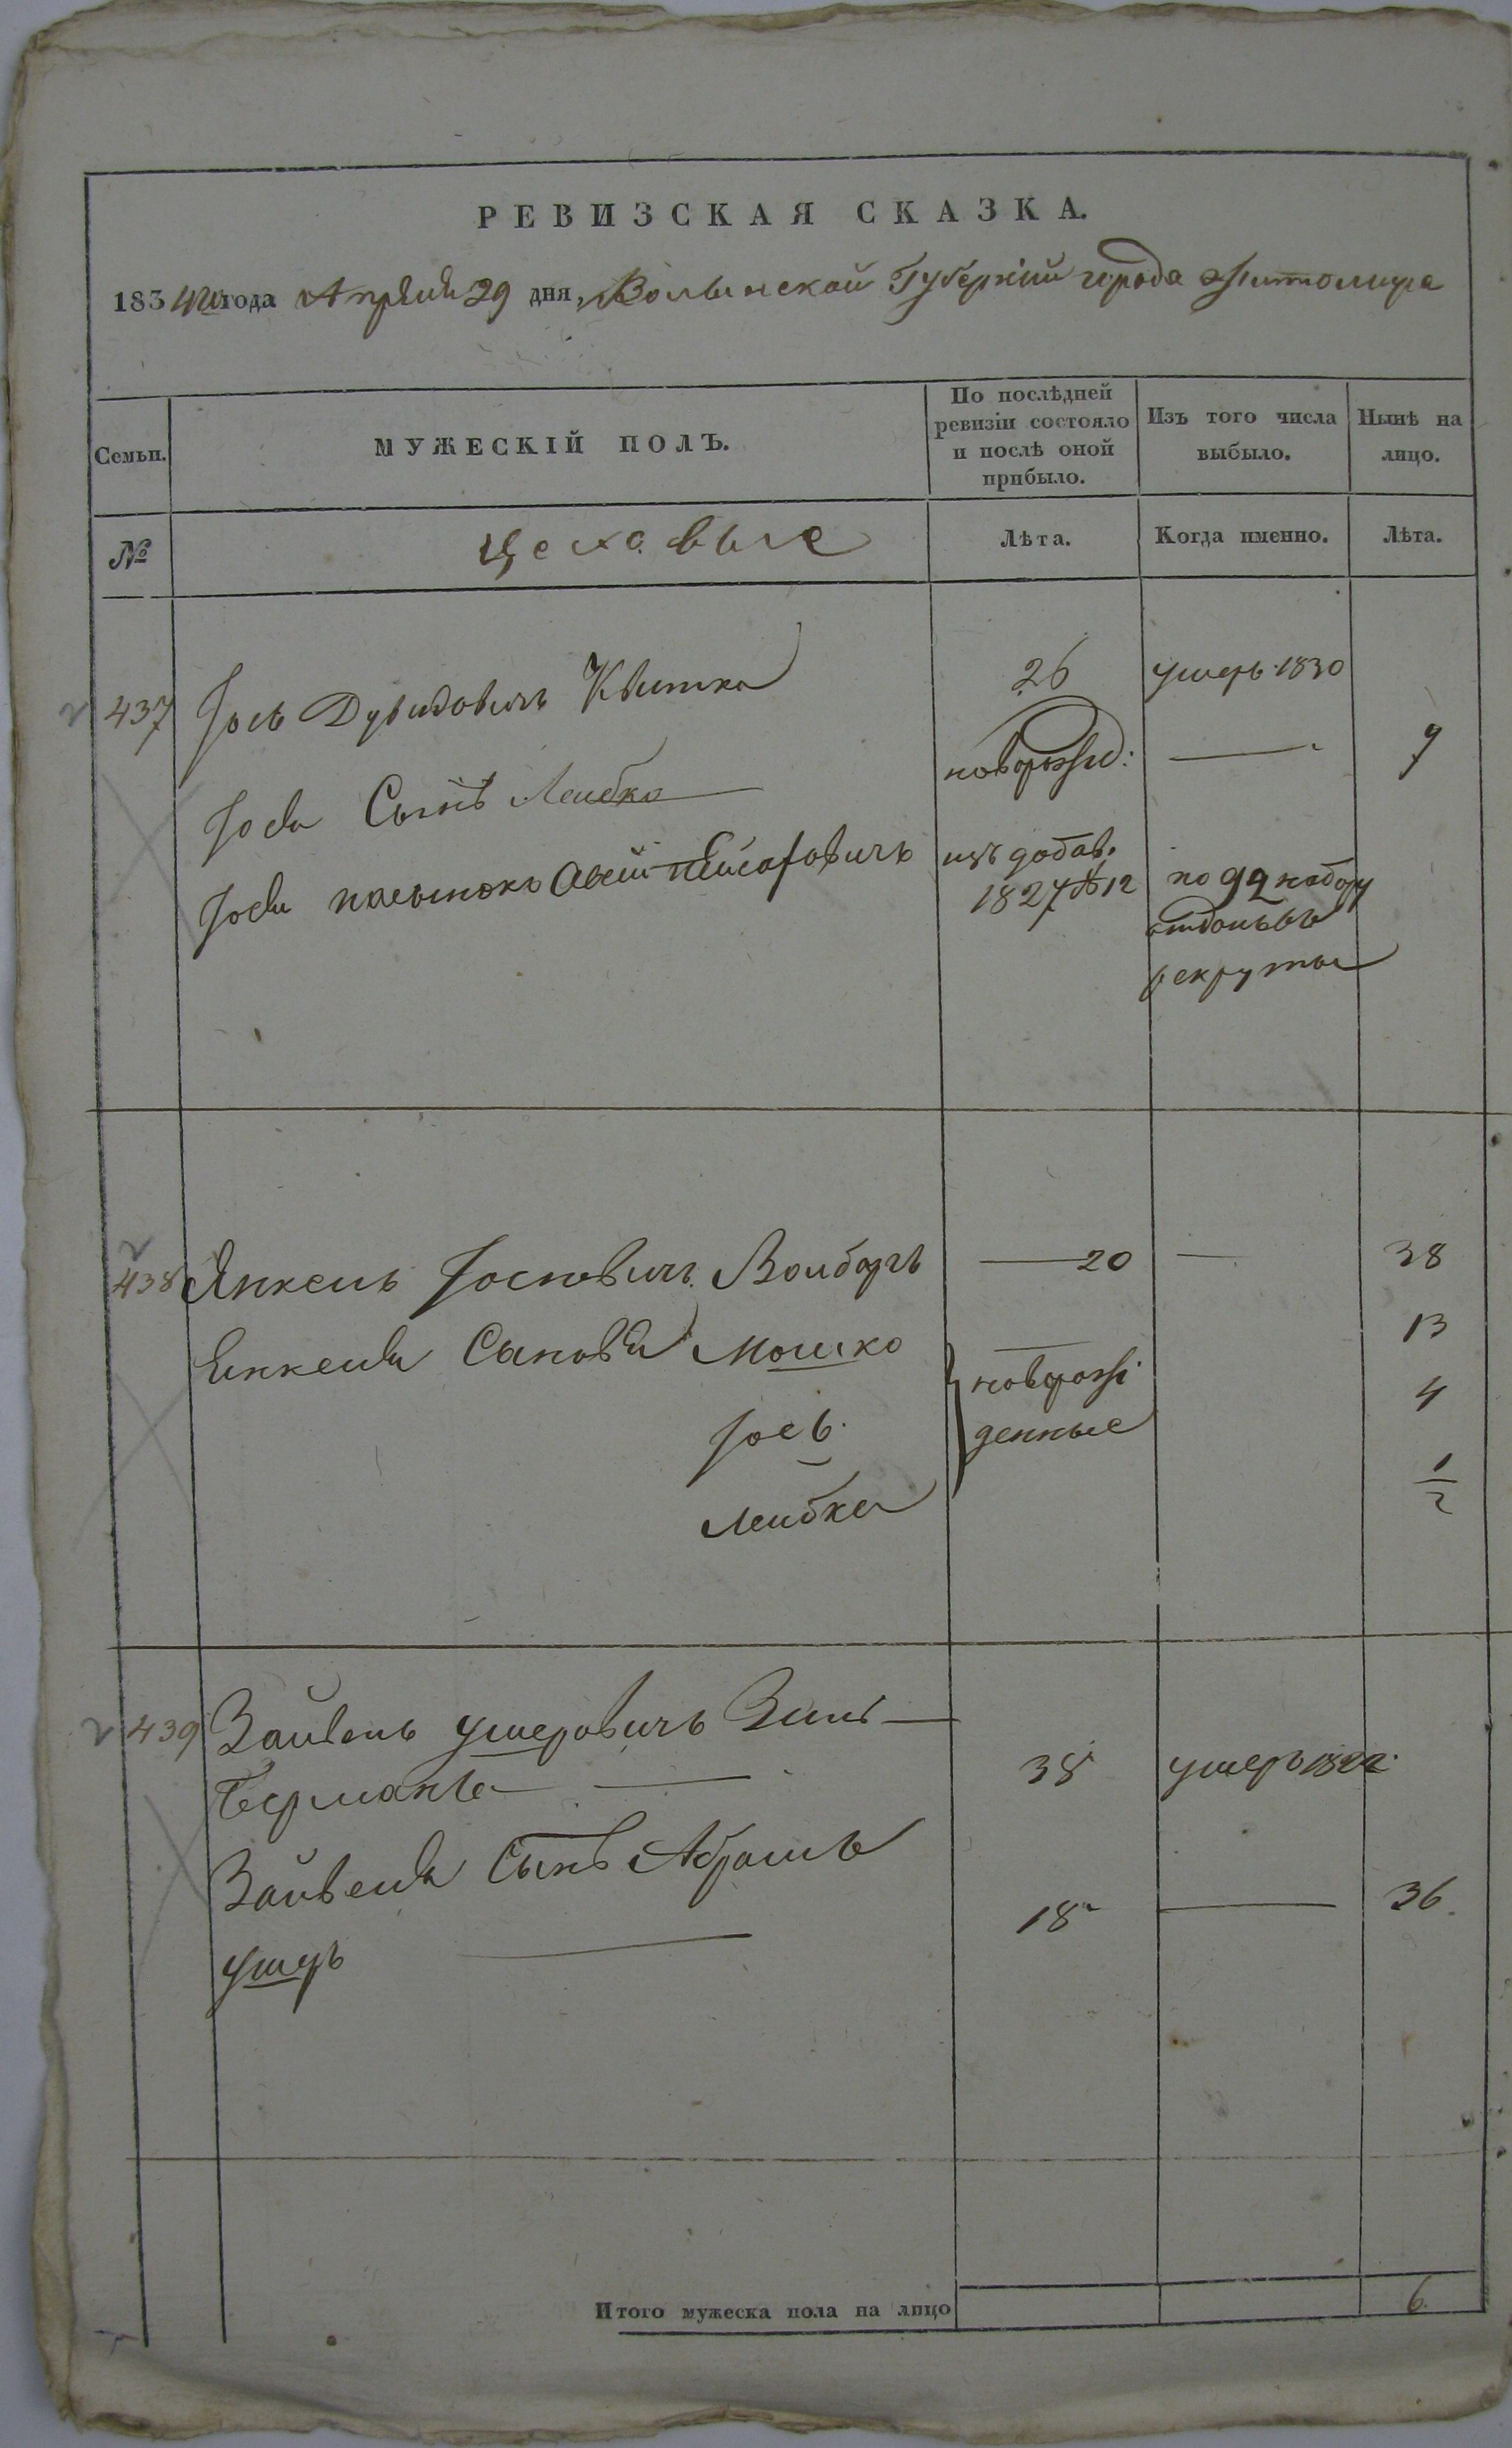 РЕВИЗСКАЯ СКАЗКА.
1834го года Апреля 29 дня, Волынской Губерніи города Житомира
Семьи. МУЖЕСКІЙ ПОЛЪ. По послѣдней ревизіи состояло и послѣ оной прибыло. Изъ того числа выбыло. Нынѣ на лицо.
№ Цеховые Лѣта. Когда именно. Лѣта.
437 Іось Дувидовичъ Квитка 26 умеръ 1830
Іося Сынъ Лейбко новорожд: — 9
Іося пасынокъ изъ добав. 1827 12 по 92 набору
отданъ въ
рекруты
438 Янкель Іосковичъ — 20 — 38
Янкеля Сыновья Мошко новорож 13
Іось денные 4
Лейбка 1/2
439 Зайвель Ушеровичъ Зиль
берманъ — 38 умеръ
Зайвеля Сынъ Абрамъ
Ушеръ — 18 — 36
Итого мужеска пола на лицо 6.